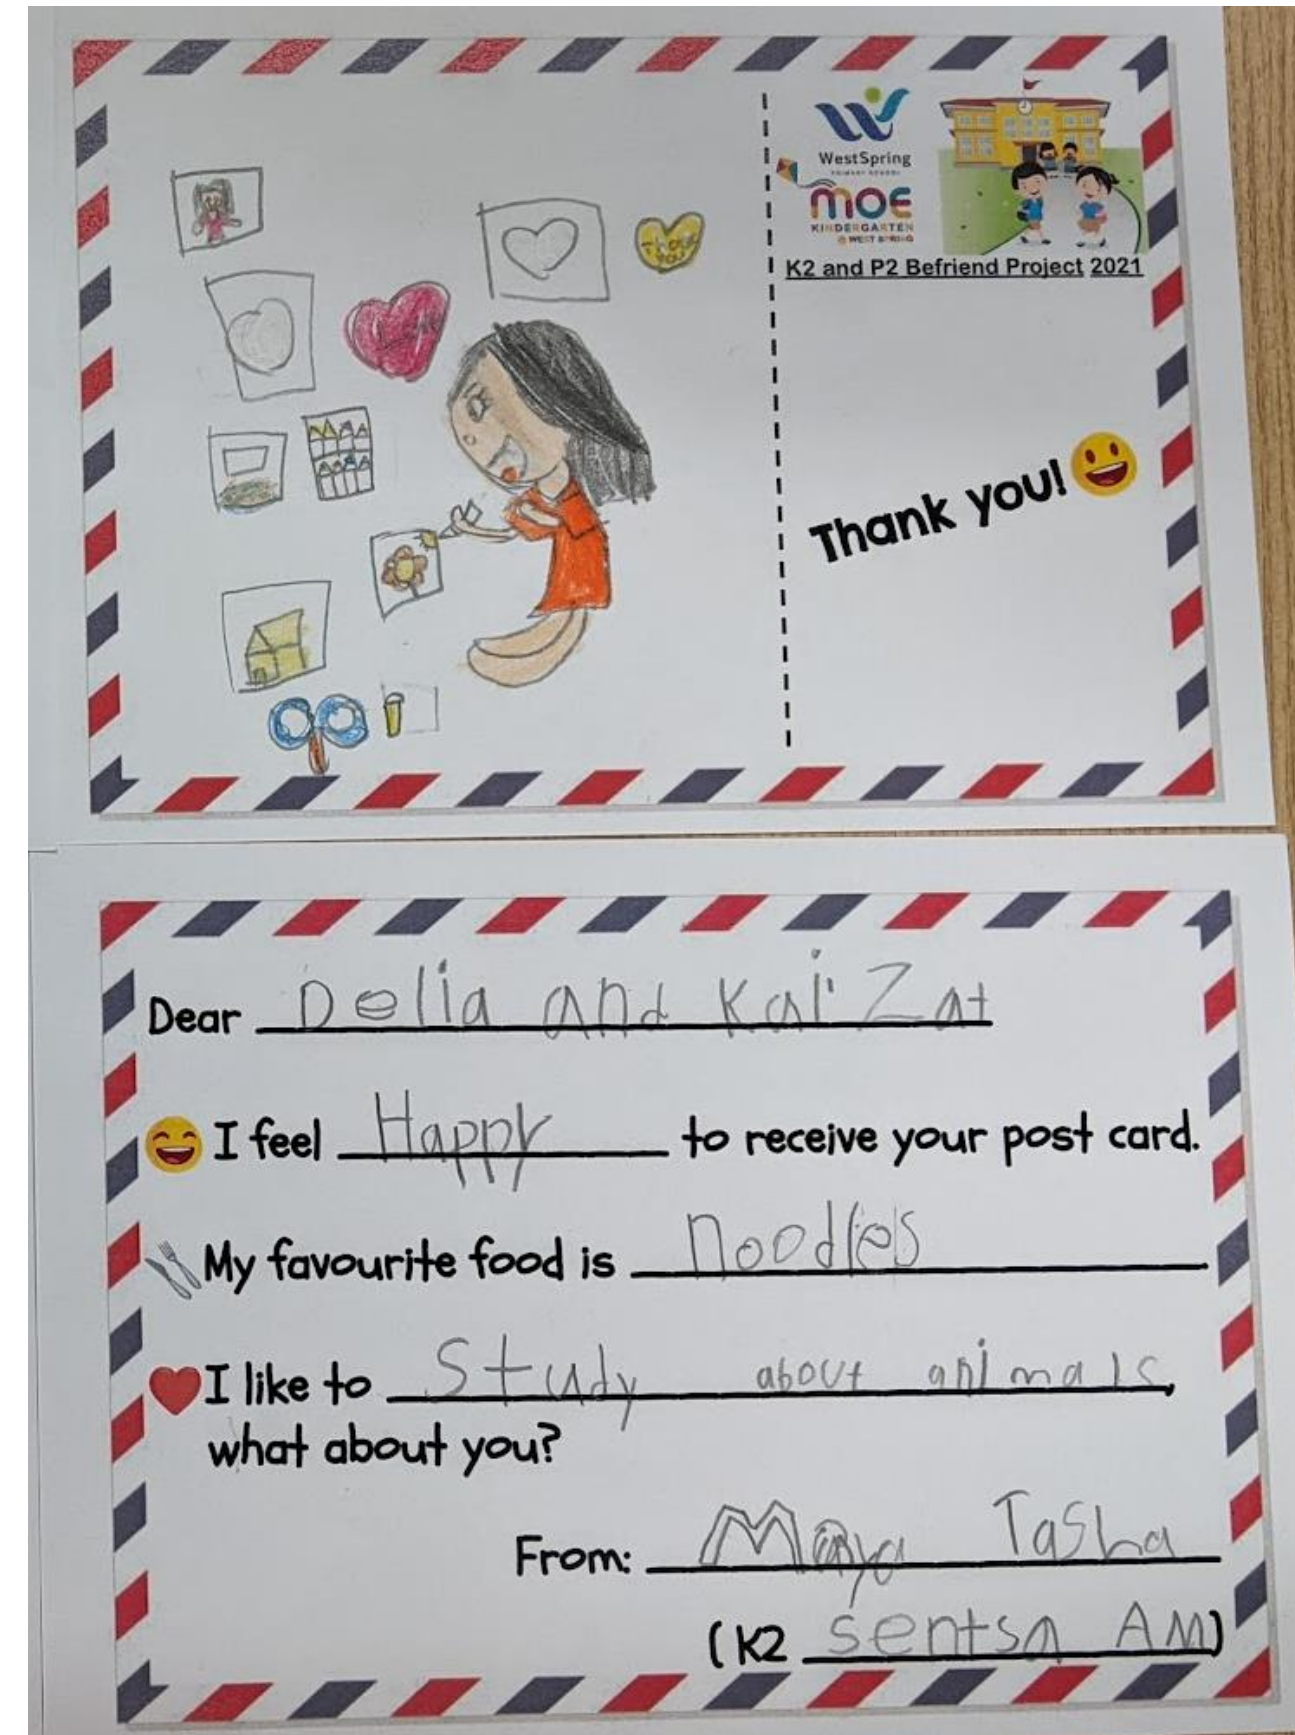 WestSpring
PRIMARY SCHOOL
moe
KINDERGARTEN
@ WEST SPRING
K2 and P2 Befriend Project 2021
THank
YOU
Love
Thank you!
Dear Delia and Kai Zat
I feel Happy to receive your post card.
My favourite food is noodles
I like to Study about animals,
what about you?
From: Maya Tasha
(K2 sentsa AM)